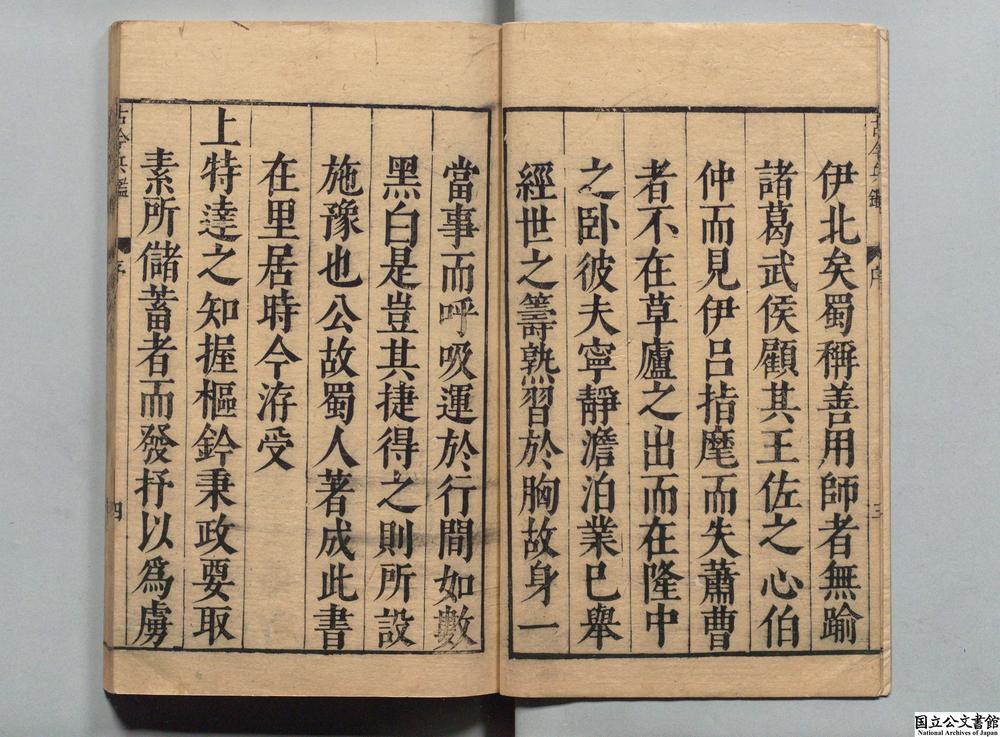 伊北矣蜀稱善用師者無踰
諸葛武侯顧其王佐之心伯
仲而見伊呂指麾而失蕭曹
者不在草廬之出而在隆中
之卧彼夫寧靜澹泊業已舉
經世之籌熟習於胸故身一
當事而呼吸運於行間如數
黑白是豈其捷得之則所設
施豫也公故蜀人著成此書
在里居時今洊受
上特達之知握樞鈐秉政要取
素所儲蓄者而發抒以為虜
古今兵鑑
序
三
古今兵鑑
序
四
国立公文書館
National Archives of Japan